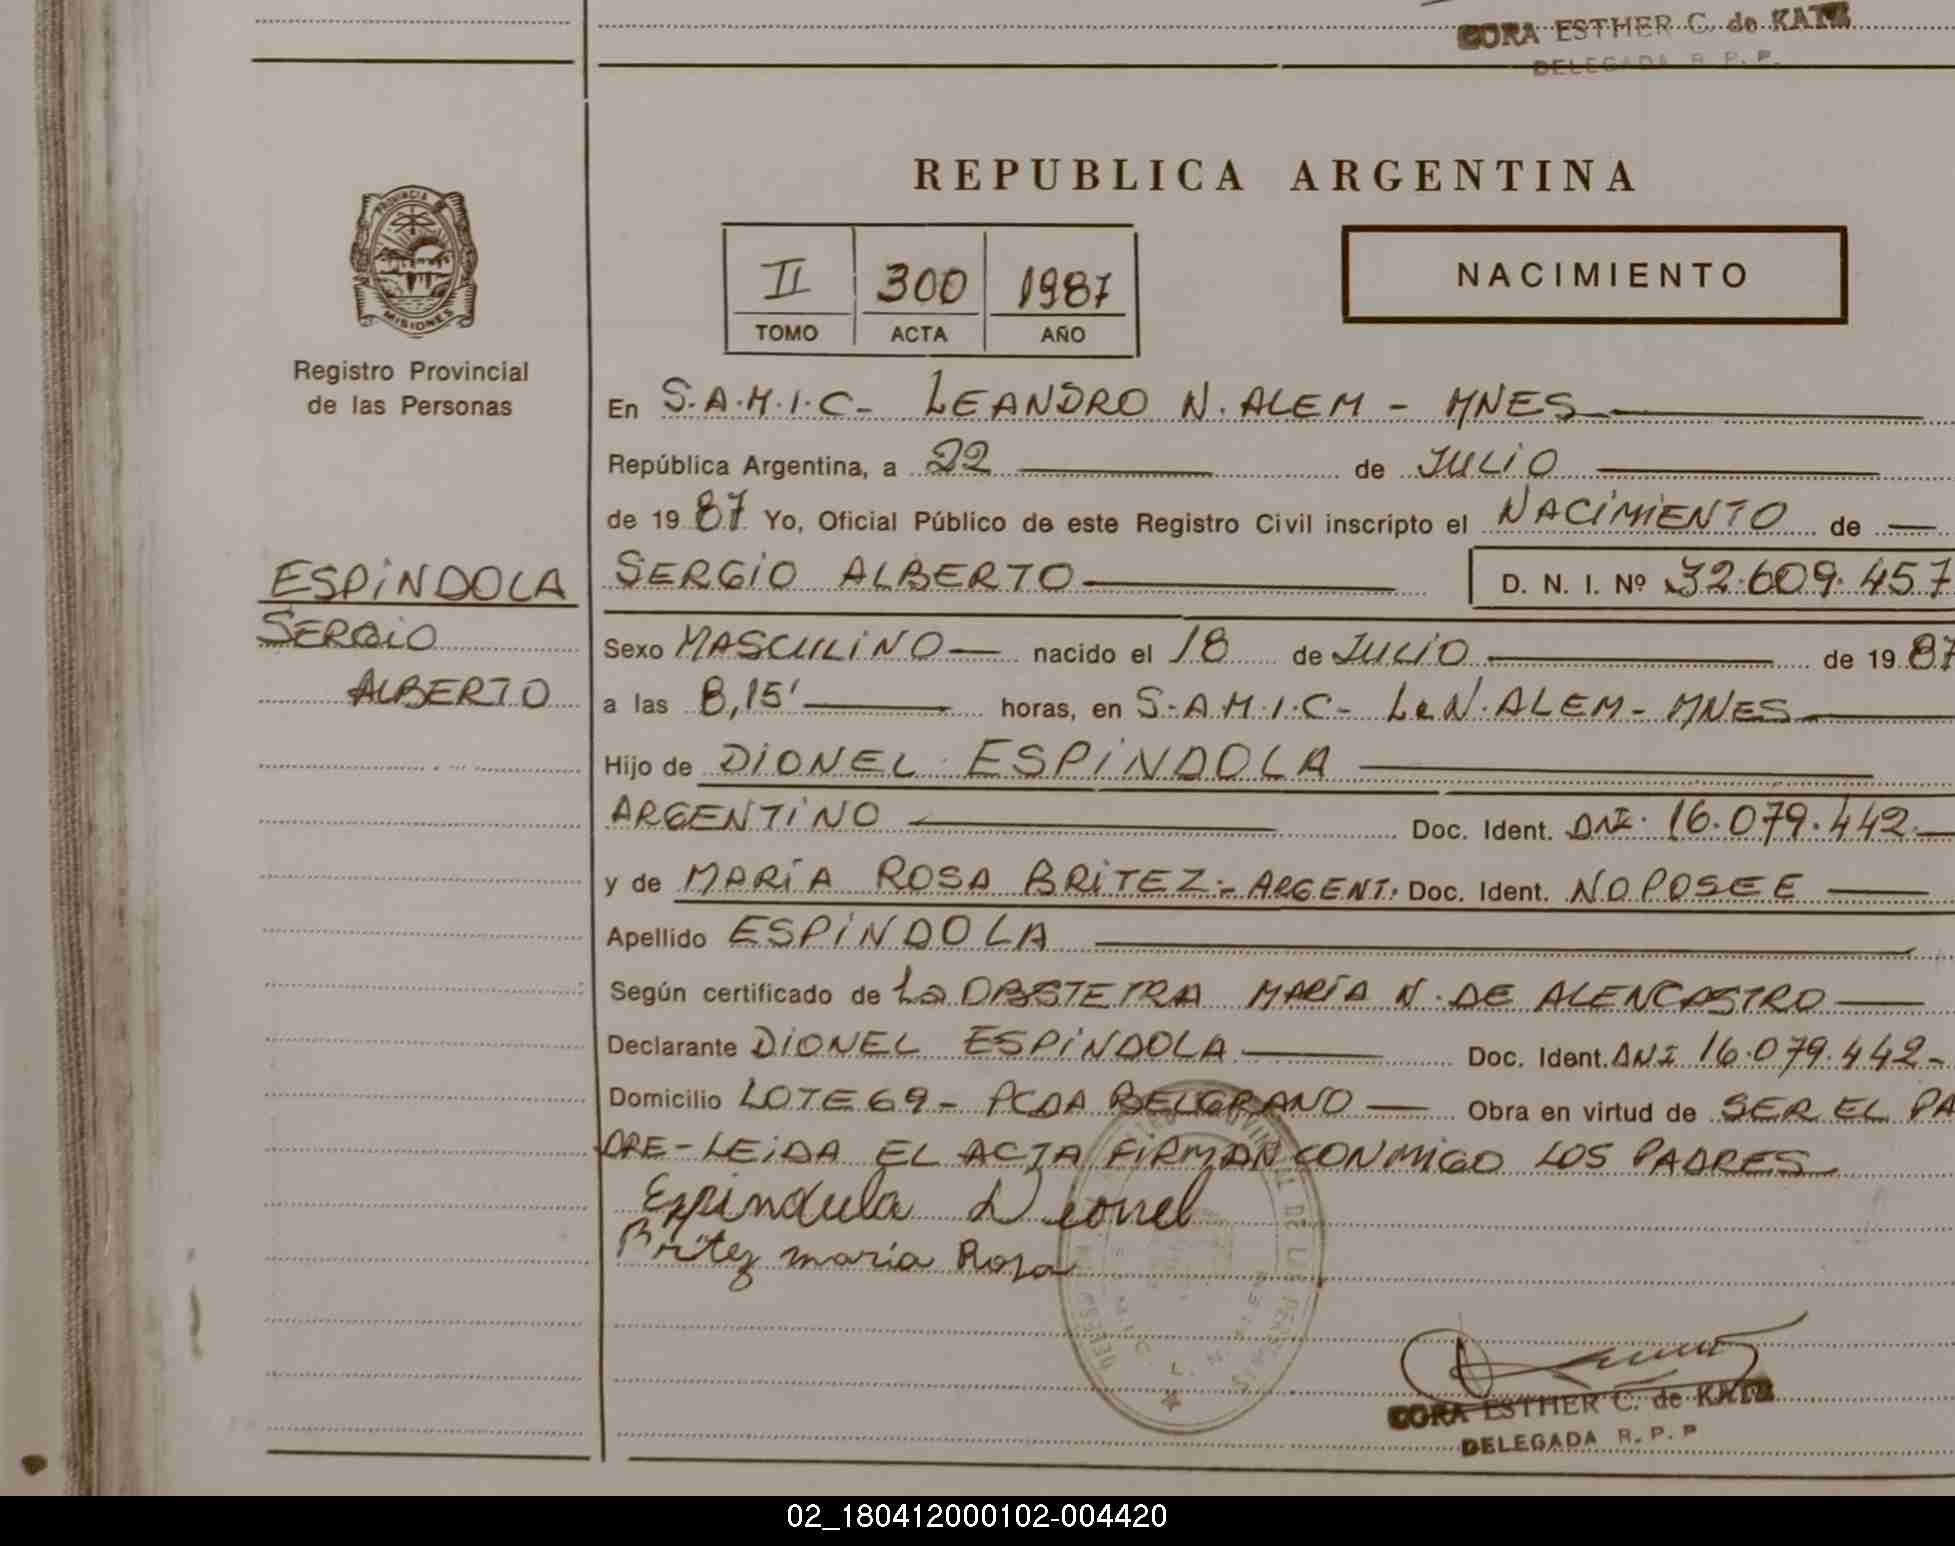 CORA ESTHER C. de KATZ
DELEGADA R. P. P.
REPUBLICA ARGENTINA
PROVINCIA DE
MISIONES
Registro Provincial
de las Personas
II 300 1987
TOMO ACTA AÑO
NACIMIENTO
En S.A.M.I.C- LEANDRO N. ALEM - MNES
República Argentina, a 22 de JULIO
de 19 87 Yo, Oficial Público de este Registro Civil inscripto el NACIMIENTO de
ESPINDOLA
SERGIO
ALBERTO
SERGIO ALBERTO D. N. I. Nº 32.609.457
Sexo MASCULINO nacido el 18 de JULIO de 19 87
a las 8,15' horas, en S.A.M.I.C- L.N. ALEM - MNES
Hijo de DIONEL ESPINDOLA
ARGENTINO Doc. Ident. DNI. 16.079.442
y de MARÍA ROSA BRITEZ.- ARGENT. Doc. Ident. NO POSEE
Apellido ESPINDOLA
Según certificado de La OBSTETRA MARÍA N. DE ALENCASTRO
Declarante DIONEL ESPINDOLA Doc. Ident. DNI 16.079.442-
Domicilio LOTE 69 - PCDA BELGRANO Obra en virtud de SER EL PA
DRE - LEIDA EL ACTA FIRMAN CONMIGO LOS PADRES
Espindula Dionel
Britez maria Rosa
CORA ESTHER C. de KATZ
DELEGADA R. P. P
02_180412000102-004420